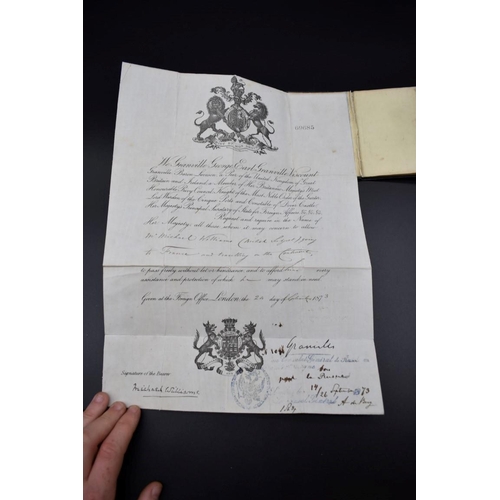 We Granville George Earl Granville, Viscount
Granville, Baron Leveson, a Peer of the United Kingdom of Great
Britain and Ireland, a Member of Her Britannic Majesty's Most
Honorable Privy Council, Knight of the Most Noble Order of the Garter,
Lord Warden of the Cinque Ports and Constable of Dover Castle,
Her Majesty's Principal Secretary of State for Foreign Affairs &c &c &c
Request and require in the Name of
Her Majesty, all those whom it may concern to allow
Mr Michael Williams (British Subject) going
to France and travelling on the Continent
to pass freely without let or hindrance, and to afford him every
assistance and protection of which he may stand in need.
Given at the Foreign Office, London, the day of 1873
Granville
Signature of the Bearer.
Michael Williams
14/26 September 1873